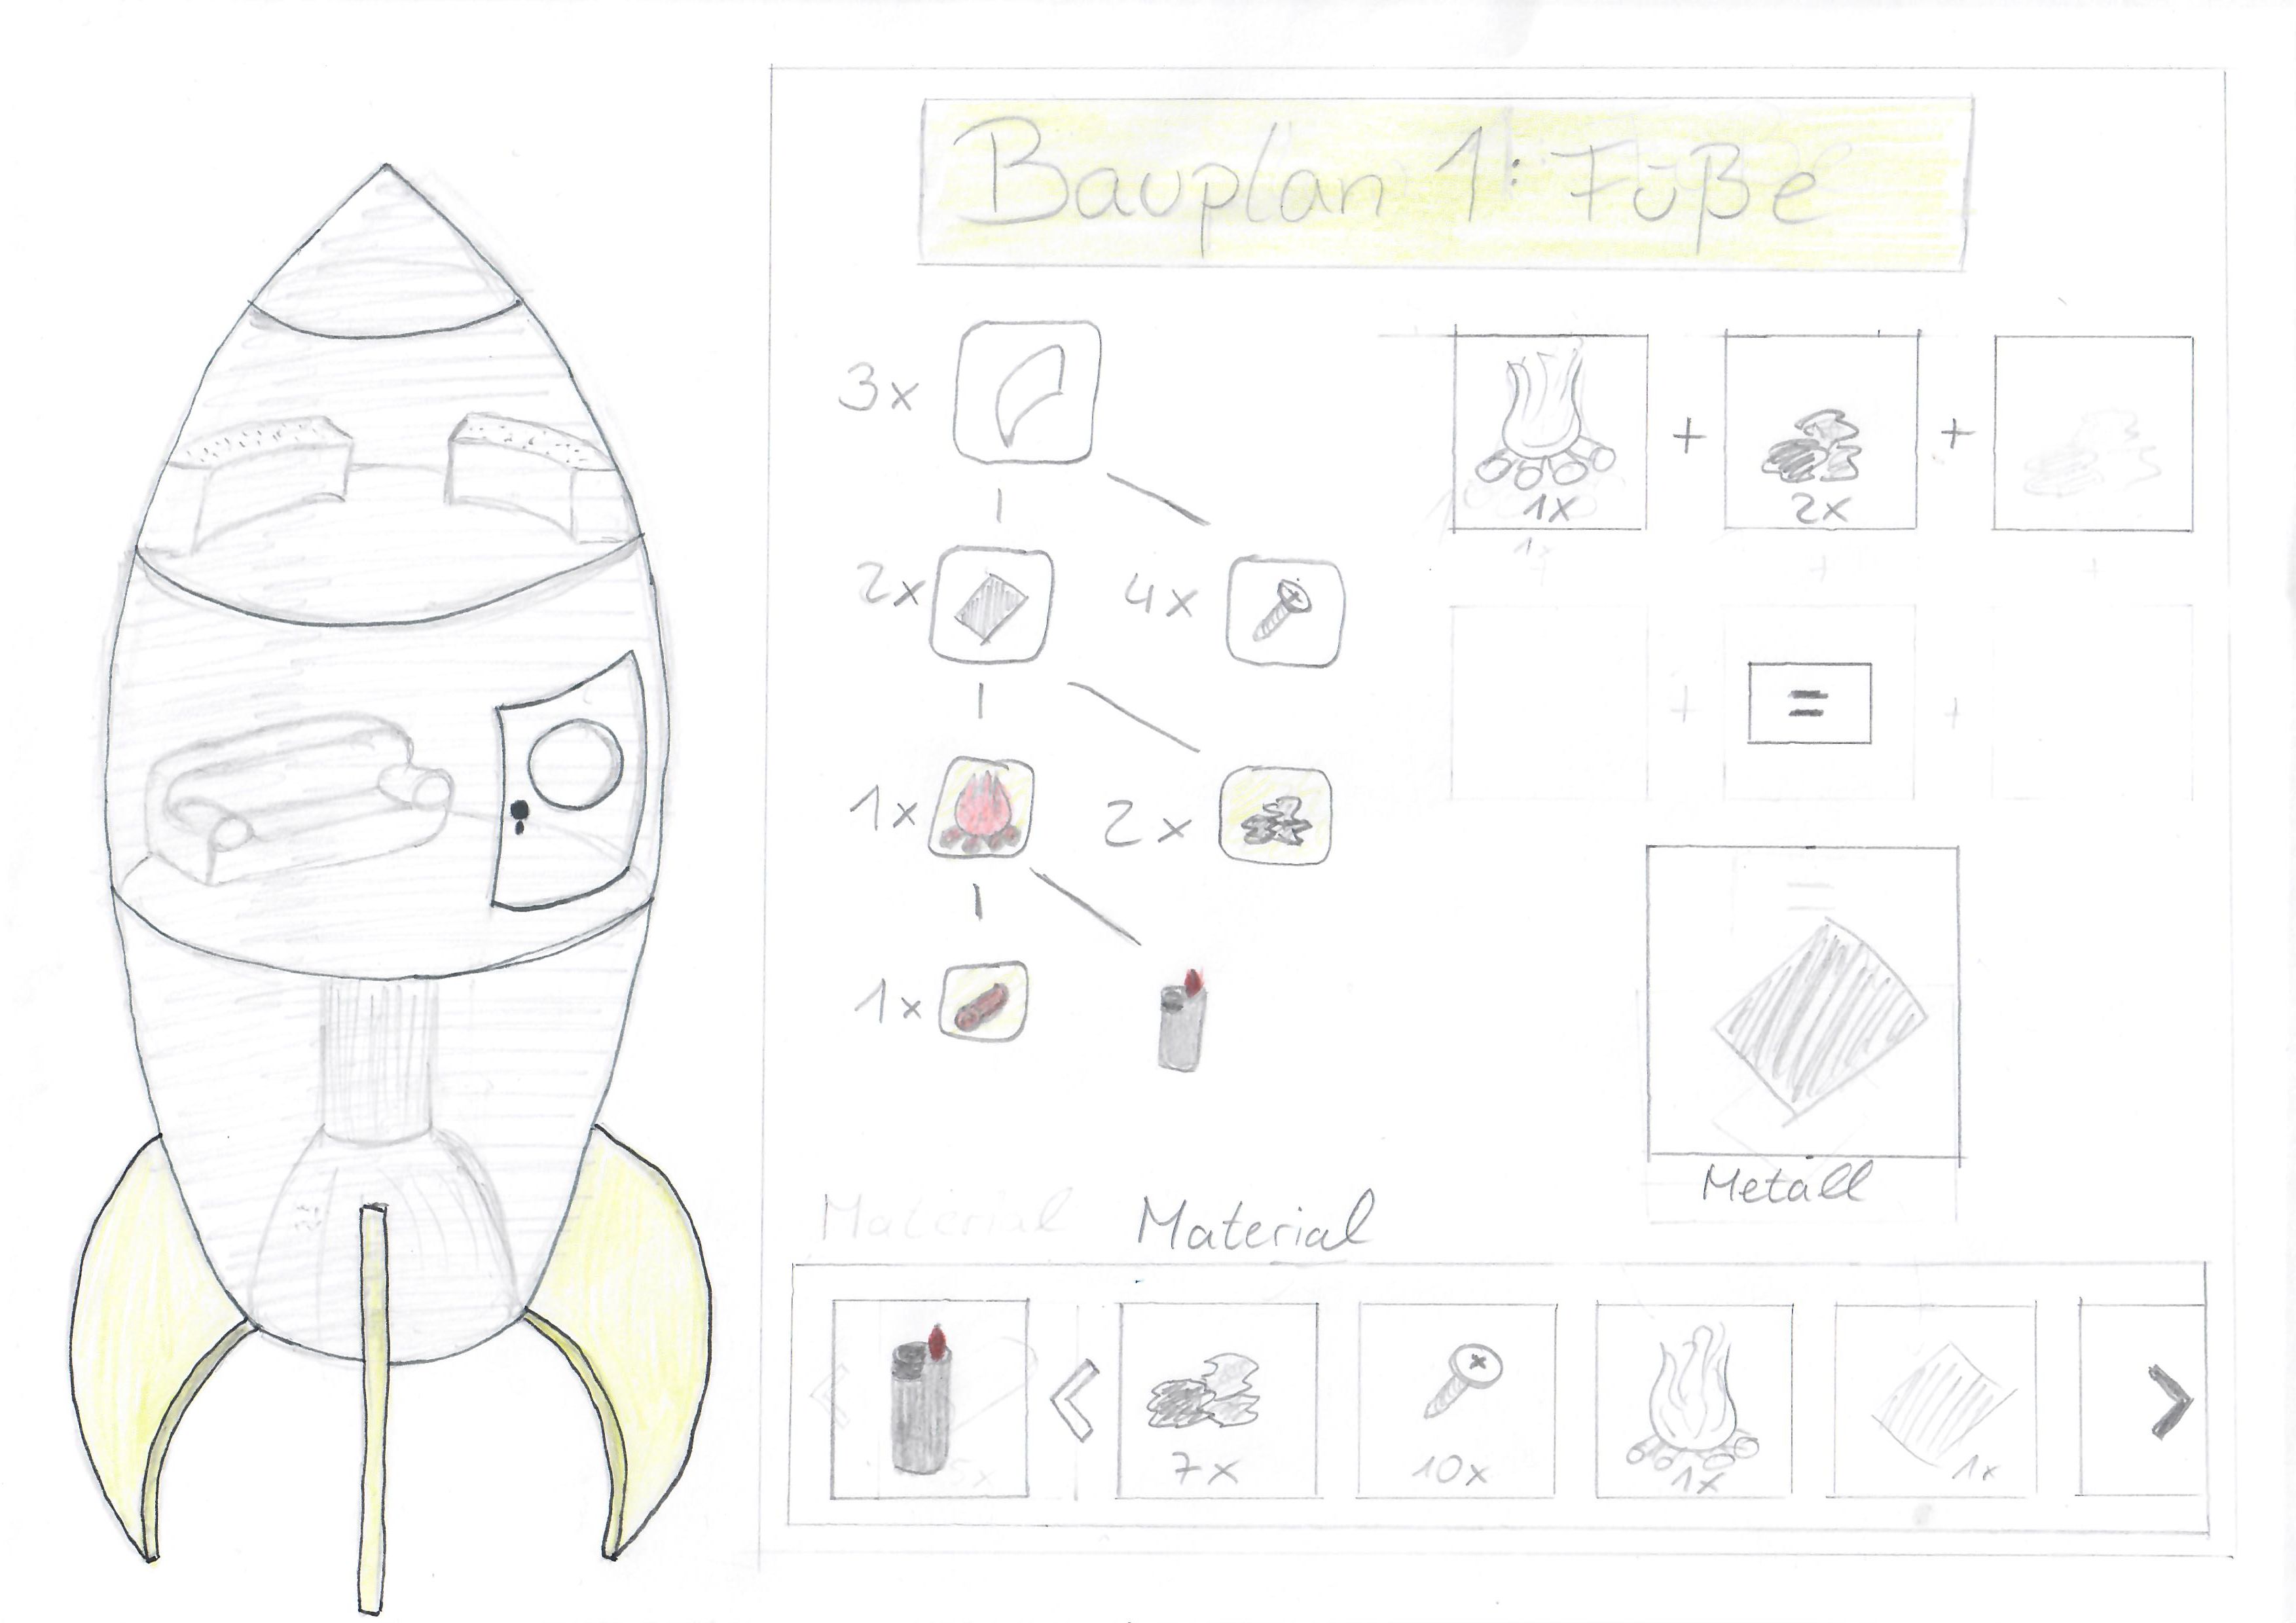 Bauplan 1: Füße
3x
1x + 2x +
2x 4x
=
1x 2x
1x
Metall
Material Material
7x 10x 1x 1x